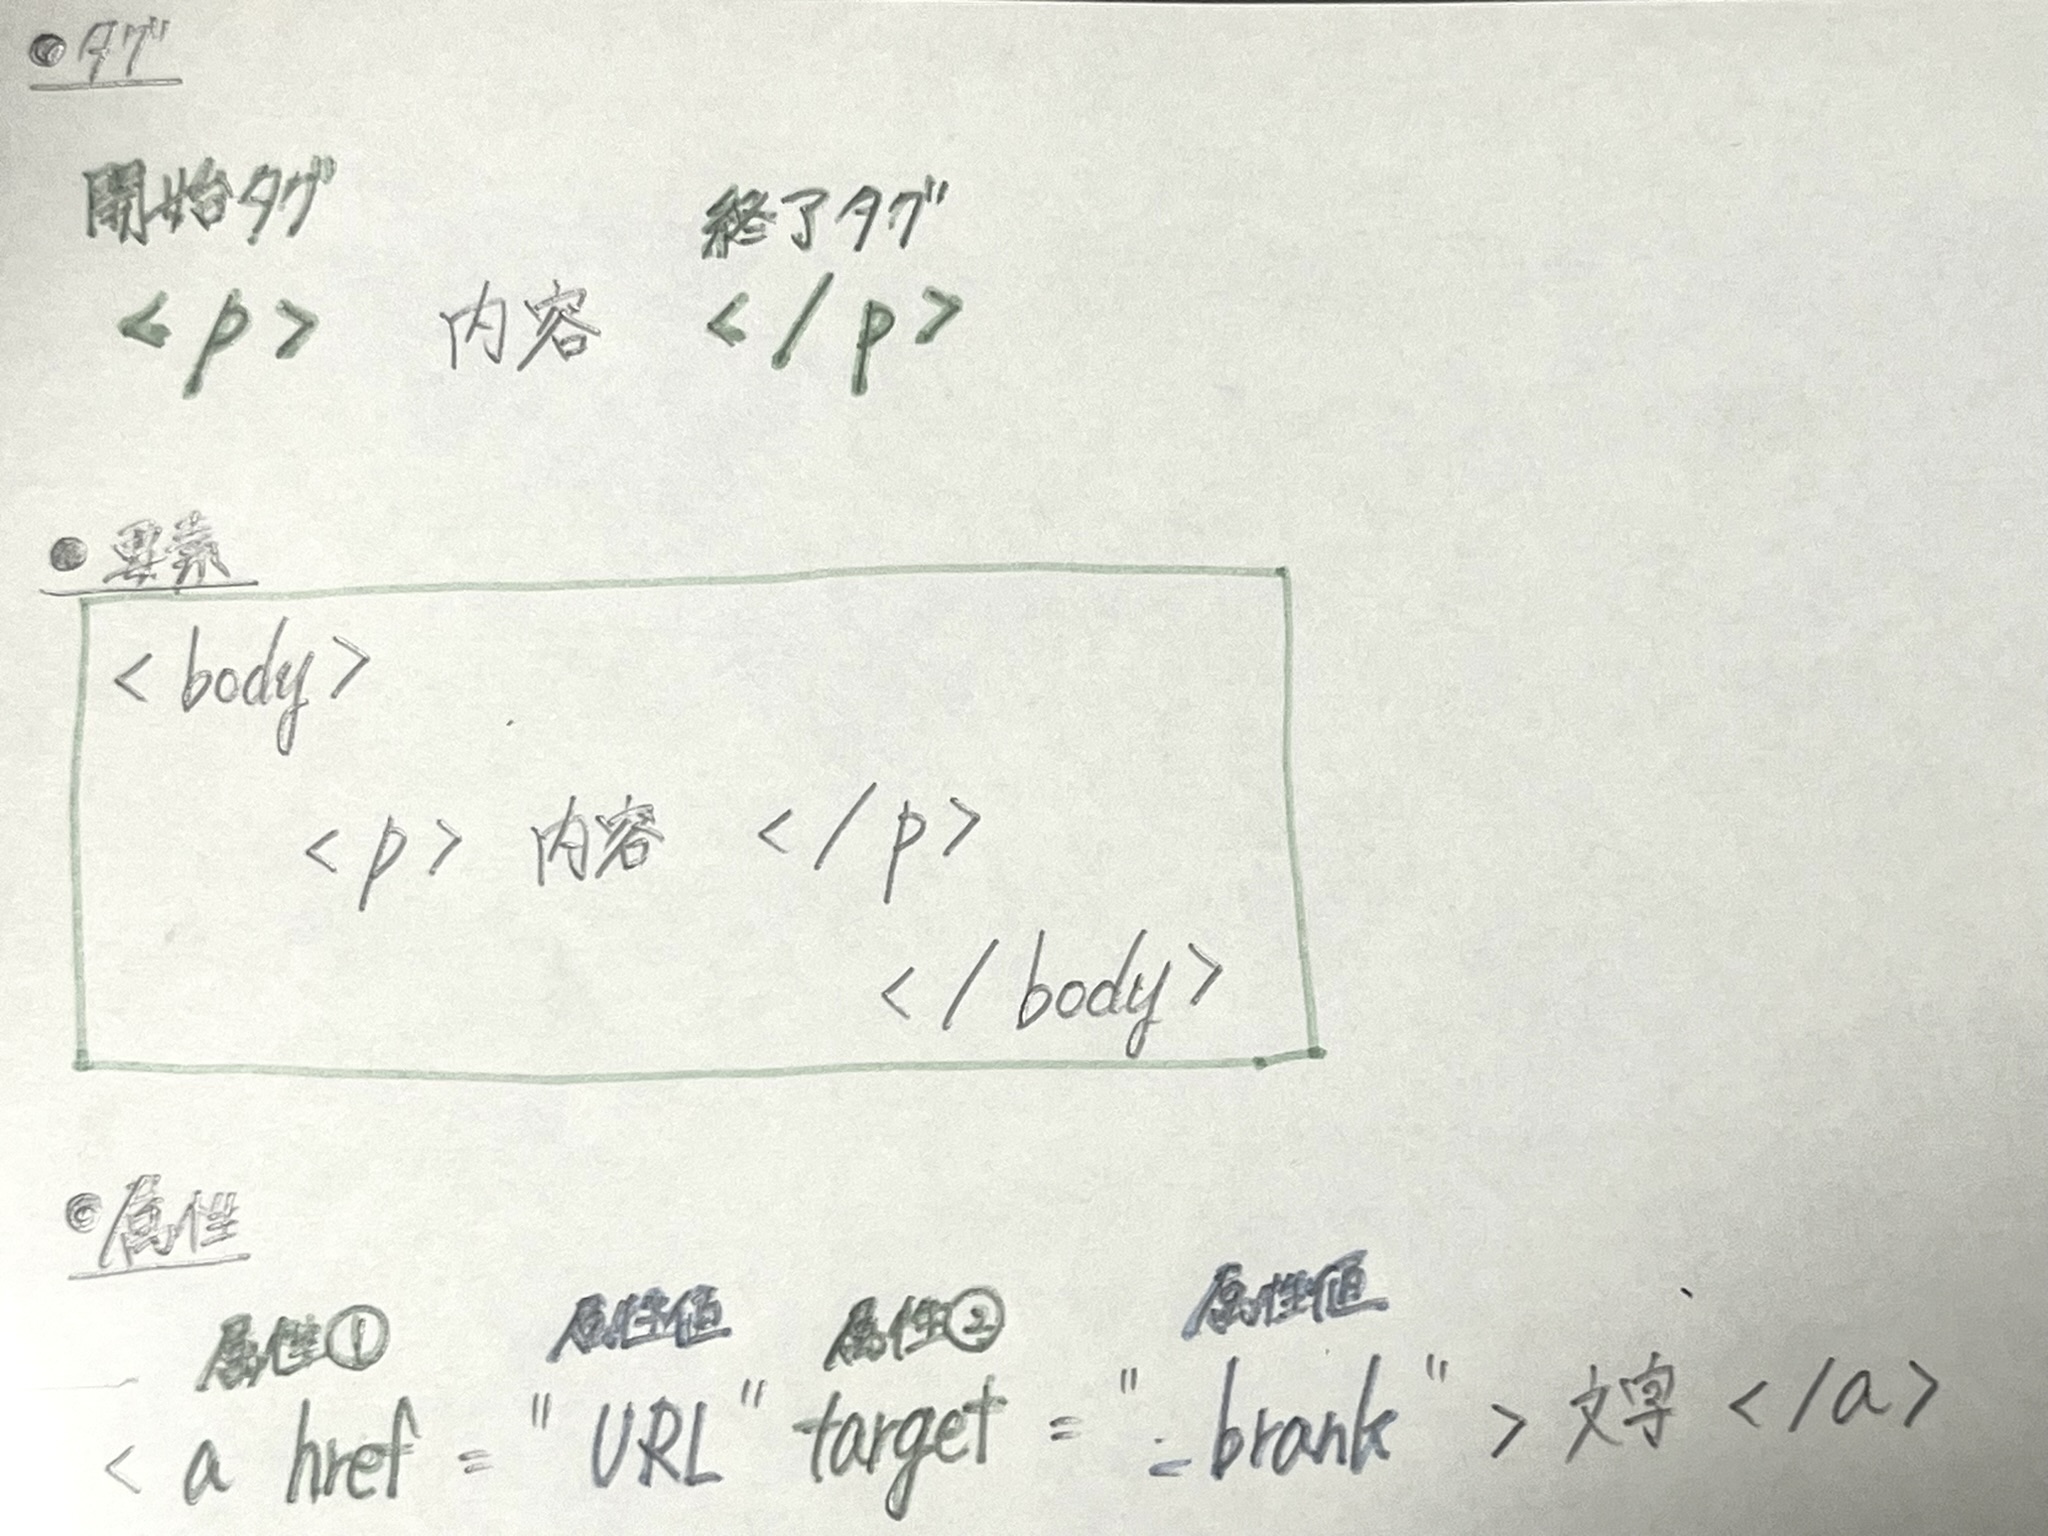 ●タグ
開始タグ 終了タグ
<p> 内容 </p>
●要素
<body>
<p> 内容 </p>
</body>
●属性
属性① 属性値 属性② 属性値
<a href="URL" target="_brank">文字</a>